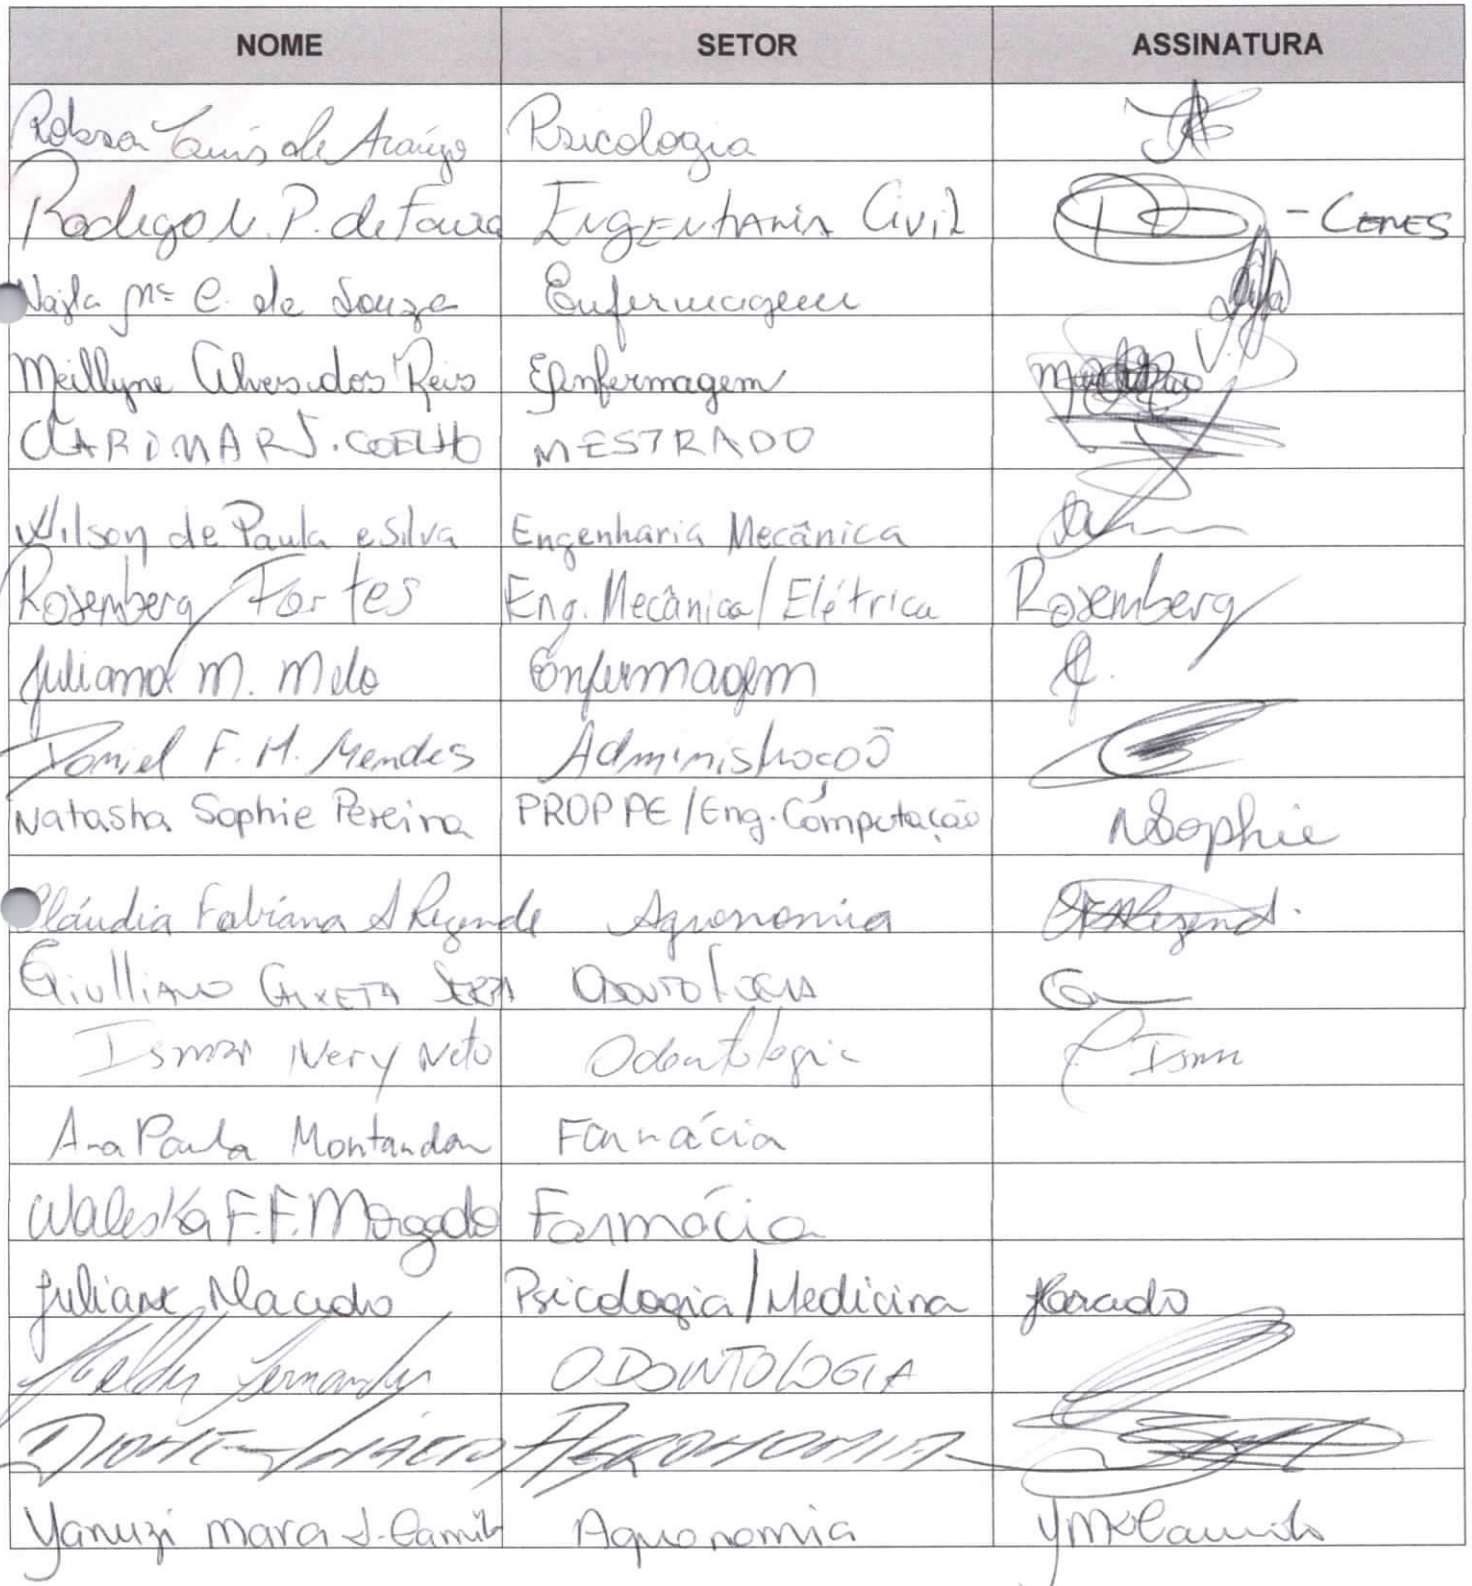 NOME SETOR ASSINATURA
Robson Luís de Araújo Psicologia
Rodrigo P. de Engenharia Civil - CENES
Najla Mª C. de Souza Enfermagem
Meillyne Alves dos Reis Enfermagem
CLARIMAR J. COELHO MESTRADO
Wilson de Paula e Silva Engenharia Mecânica
Rosemberg Fortes Eng. Mecânica/Elétrica Rosemberg
Juliana M. Melo Enfermagem
Daniel F. M. Mendes Administração
Natasha Sophie Pereira PROPPE/Eng. Computação NSophie
Cláudia Fabiana A Rezende Agronomia
Giulliano Caixeta Serpa Odontologia
Ismar Nery Neto Odontologia
Ana Paula Montandon Farmácia
Waleska F. F. Morgado Farmácia
Juliane Macedo Psicologia/Medicina
Fernandes ODONTOLOGIA
AGRONOMIA
Yanuzi Mara Camilo Agronomia